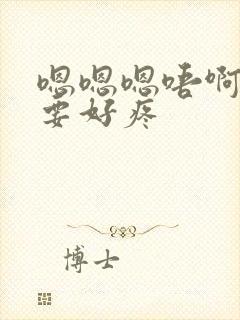 嗯嗯嗯唔啊
要好疼
博士